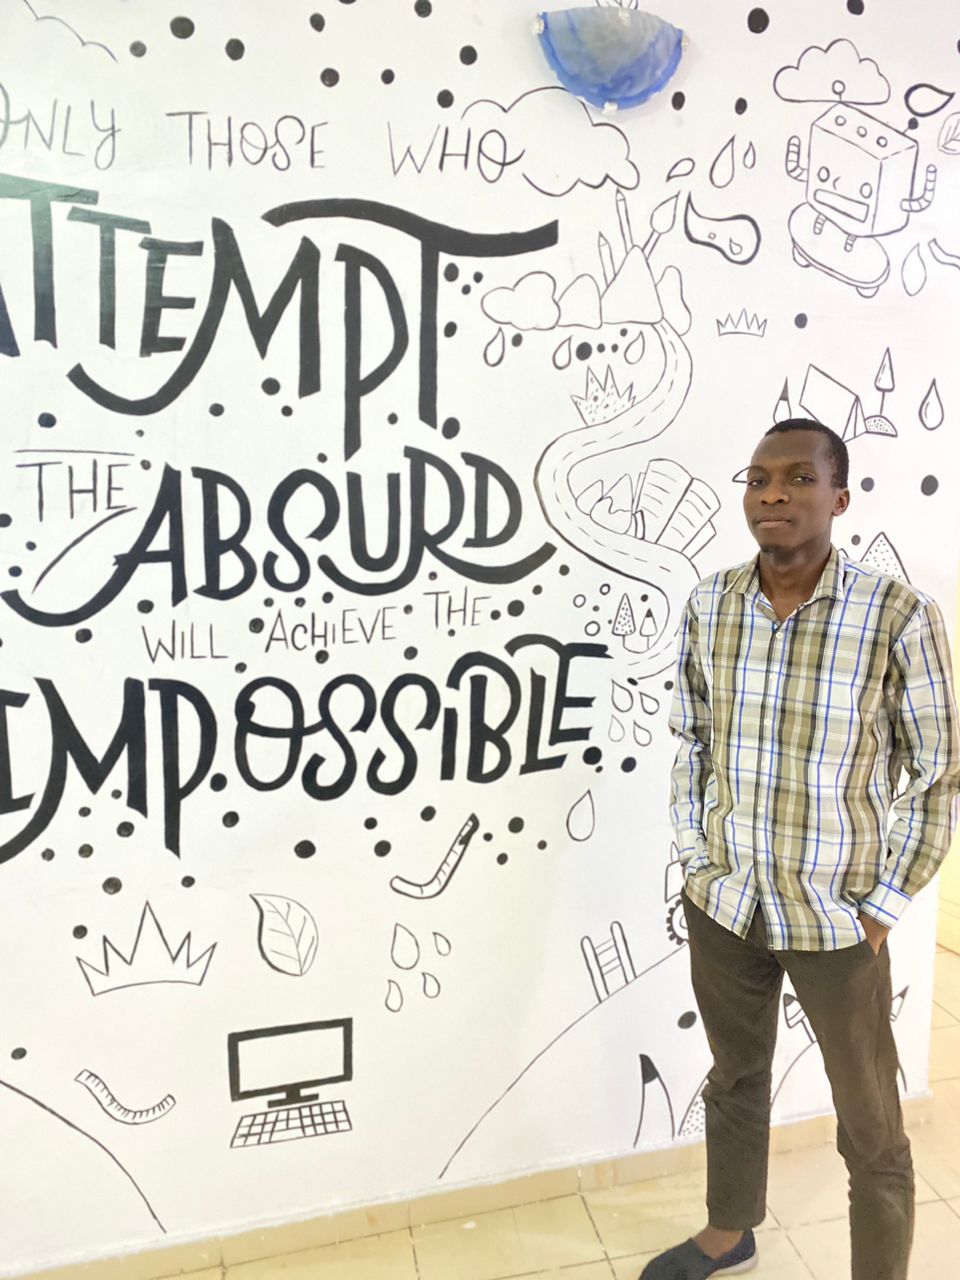 ONLY THOSE WHO
ATTEMPT
THE ABSURD
WILL ACHIEVE THE
IMPOSSIBLE.